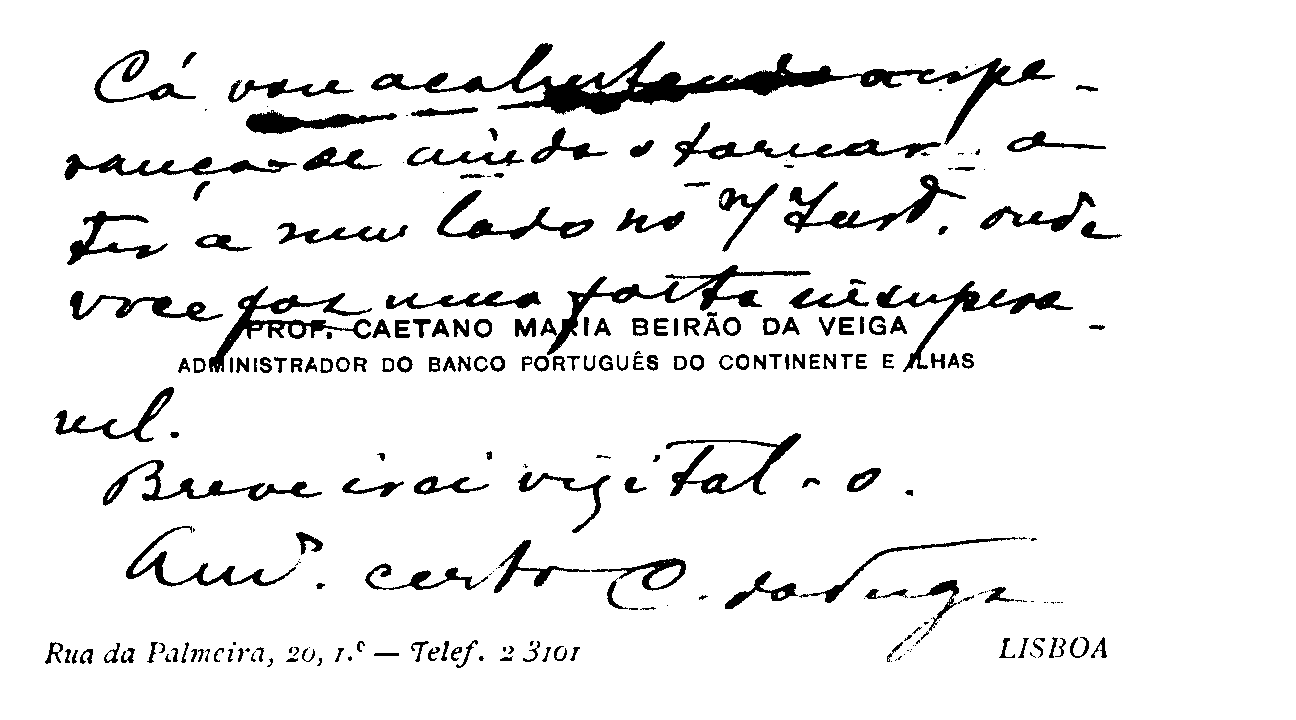 Cá vou acalentando a espe-
rança de ainda o tornar a
ter a meu lado no n/ Jard. onde
voce faz uma falta insupera-
PROF. CAETANO MARIA BEIRÃO DA VEIGA
ADMINISTRADOR DO BANCO PORTUGUÊS DO CONTINENTE E ILHAS
vel.
Breve irei vizital-o.
Amº. certo C. da Veiga
Rua da Palmeira, 20, 1.º — Telef. 2 3101 LISBOA